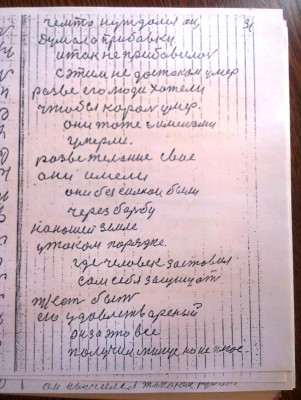 чемто нуждался он
Думало прибавки
итак не прибавилос
с этим не достаком умер
разве его люди хотели
чтобся каром умер.
они тоже с имешами
умерли.
разве желание свое
они имели
они без силной были
через борбу
на нашей земле
у таком порядке.
где человек заставил
сам себя защищат
может быт
его удовлетвореный
он за это все
получил
он научился